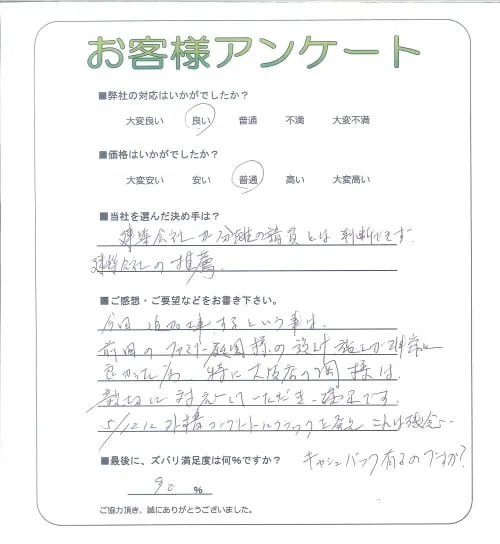 お客様アンケート
■弊社の対応はいかがでしたか?
大変良い 良い 普通 不満 大変不満
■価格はいかがでしたか?
大変安い 安い 普通 高い 大変高い
■当社を選んだ決め手は?
建築会社か分離の請負とは判断できず.
建築会社の推薦.
■ご感想・ご要望などをお書き下さい。
今回追加工事するという事は、
前回のファミリー庭園様の設計施工が非常に
良かった為 特に大阪店の 様は
親切に対応していただき
5/12に外構コンクリートにクラックを発見 これは残念…
■最後に、ズバリ満足度は何%ですか?
キャッシュバック有るのですか?
90 %
ご協力頂き、誠にありがとうございました。